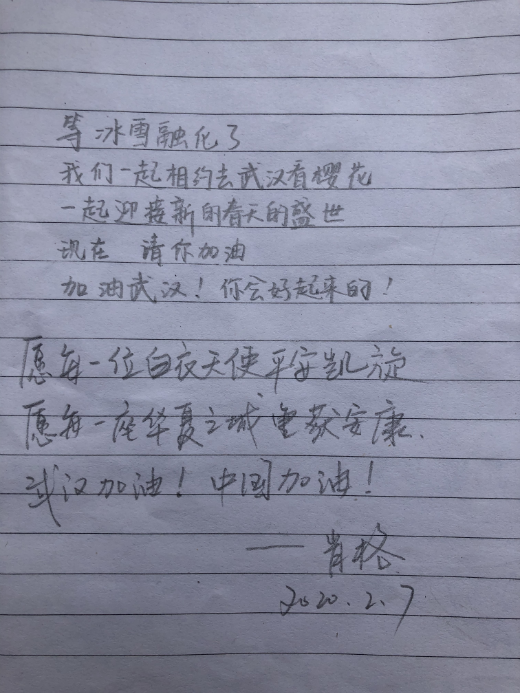 等冰雪融化了
我们一起相约去武汉看樱花
一起迎接新的春天的盛世
现在 请你加油
加油武汉！你会好起来的！
愿每一位白衣天使平安凯旋
愿每一座华夏之城重获安康.
武汉加油！中国加油！
——肖格
2020.2.7